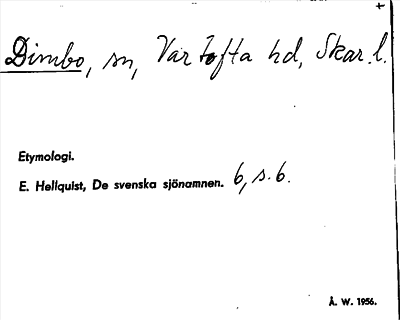 Dimbo, sn, Vartofta hd, Skar. l.
Etymologi.
E. Hellquist, De svenska sjönamnen. 6, s. 6.
Å. W. 1956.